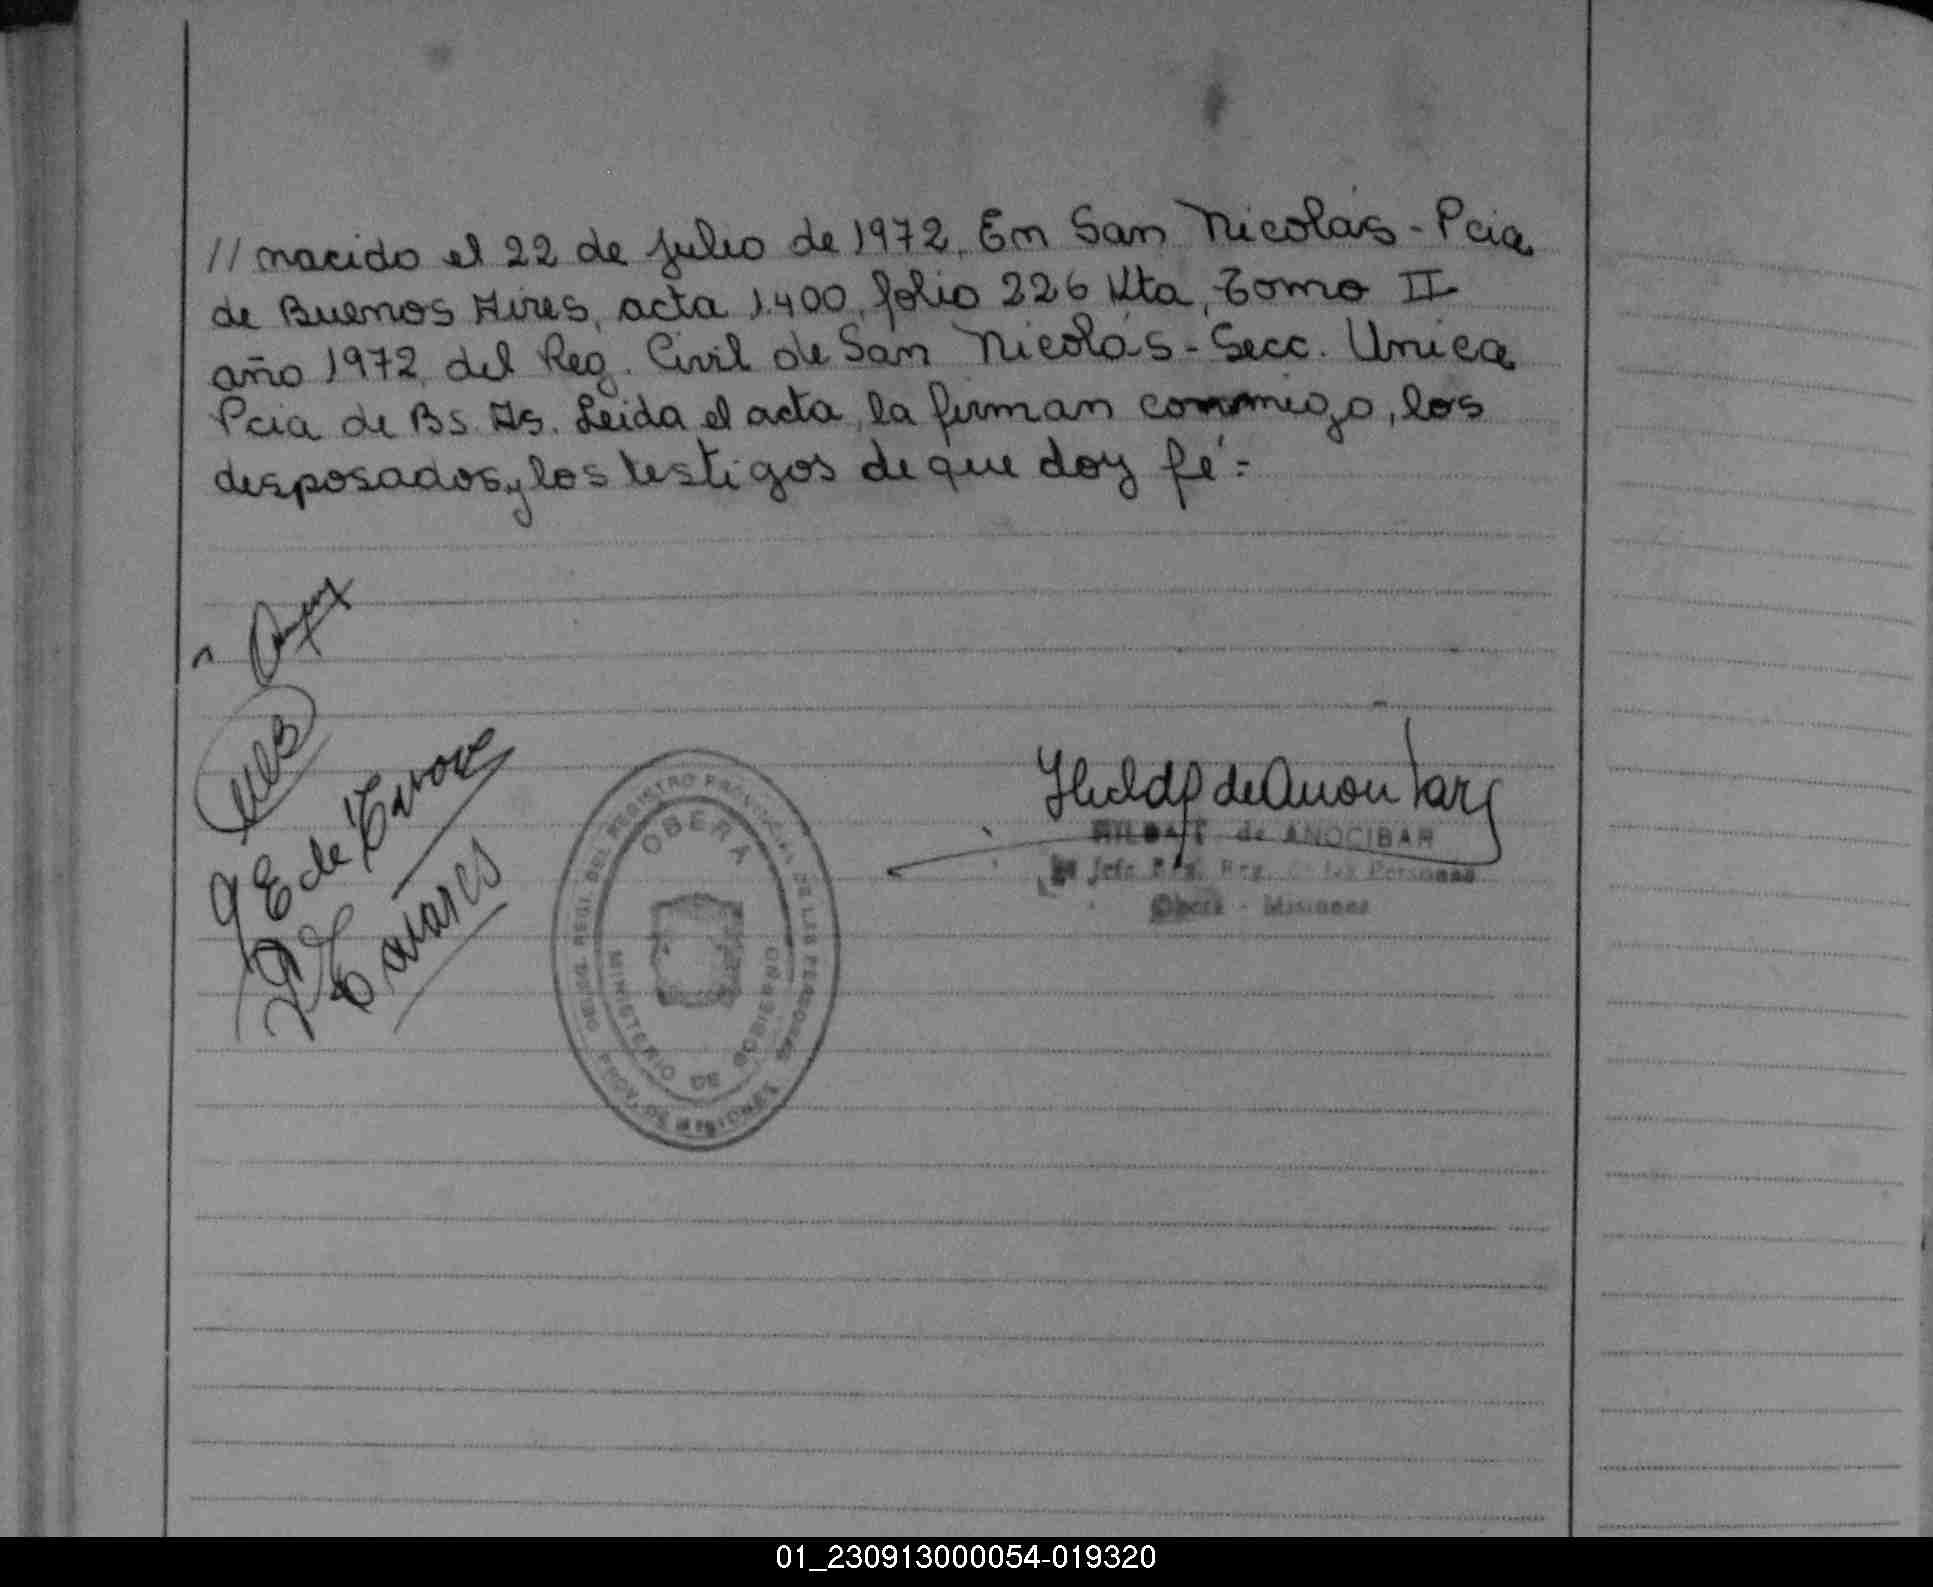 // nacido el 22 de Julio de 1972, En San Nicolás - Pcia
de Buenos Aires, acta 1.400, folio 226 Vta, Tomo II
año 1972, del Reg. Civil de San Nicolás - Secc. Unica
Pcia de Bs. As. Leida el acta, la firman conmigo, los
desposados, y los testigos de que doy fé.=
E de
Tavares
DEL REGISTRO PROVINCIAL DE LAS PERSONAS
OBERA
MINISTERIO DE GOBIERNO
PROV. DE MISIONES
de ANOCIBAR
Jefe Reg. de las Personas
Oberá - Misiones
01_230913000054-019320